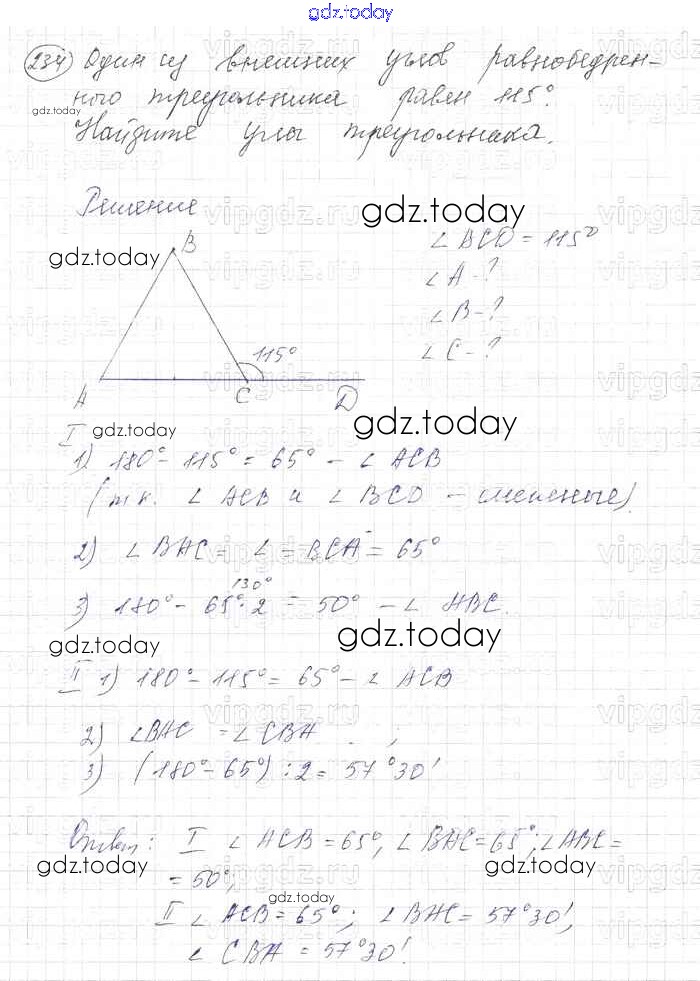 gdz.today
234 Один из внешних углов равнобедрен-
ного треугольника равен 115°.
Найдите углы треугольника.
Решение
gdz.today
gdz.today
B
∠ BCD = 115°
∠ A - ?
∠ B - ?
∠ C - ?
115°
A C D
gdz.today
I gdz.today
1) 180° - 115° = 65° - ∠ ACB
(т.к. ∠ ACB и ∠ BCD - смежные).
2) ∠ BAC = ∠ = BCA = 65°
130°
3) 180° - 65° · 2 = 50° - ∠ ABC.
gdz.today
gdz.today
II 1) 180° - 115° = 65° - ∠ ACB
2) ∠BAC = ∠ CBA ;
3) (180° - 65°) : 2 = 57°30'
Ответ: I ∠ ACB = 65°, ∠ BAC = 65°; ∠ABC =
gdz.today
gdz.today
= 50°,
gdz.today
II ∠ ACB = 65°; ∠ BAC = 57°30',
∠ CBA = 57°30'.
vipgdz.ru